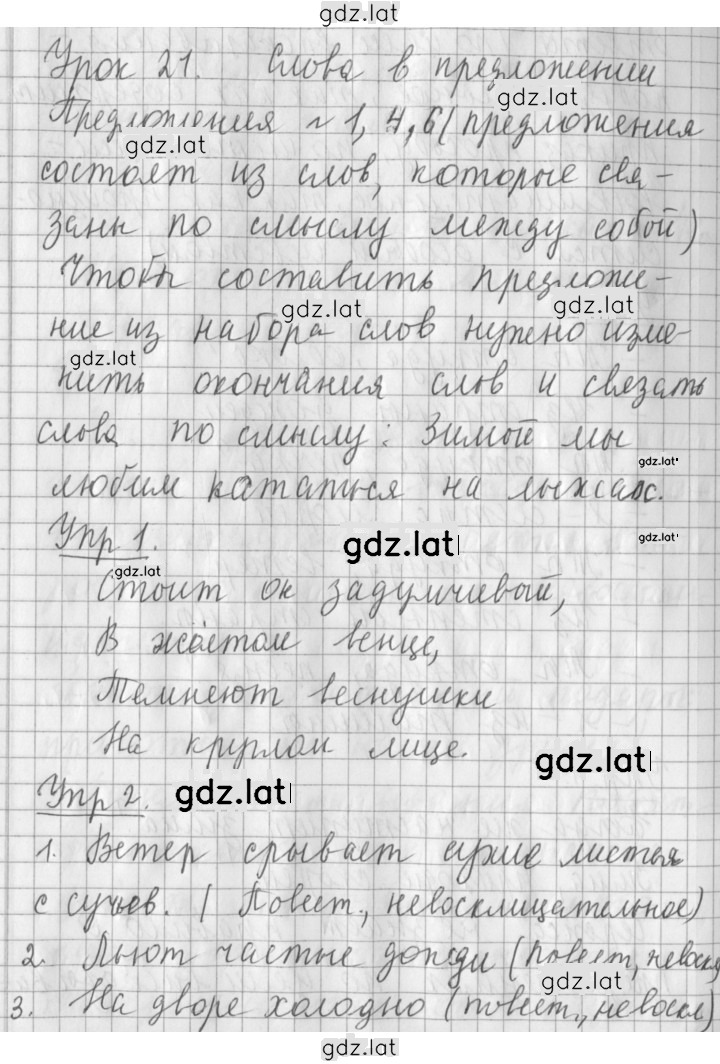 gdz.lat
Урок 21. Слова в предложении
gdz.lat
Предложения ~ 1, 4, 6 (предложения
gdz.lat
состоят из слов, которые свя-
заны по смыслу между собой)
Чтобы составить предложе-
gdz.lat gdz.lat
ние из набора слов нужно изме-
gdz.lat
нить окончания слов и связать
слова по смыслу: Зимой мы
gdz.lat
любим кататься на лыжах.
Упр 1. gdz.lat gdz.lat
gdz.lat
Стоит он задумчивый,
В жёлтом венце,
Темнеют веснушки
На круглом лице.
gdz.lat
Упр 2. gdz.lat
1. Ветер срывает сухие листья
с сучьев. (Повест., невосклицательное)
2. Льют частые дожди (повест, невоскл
gdz.lat
3. На дворе холодно (повест., невоскл)
gdz.lat